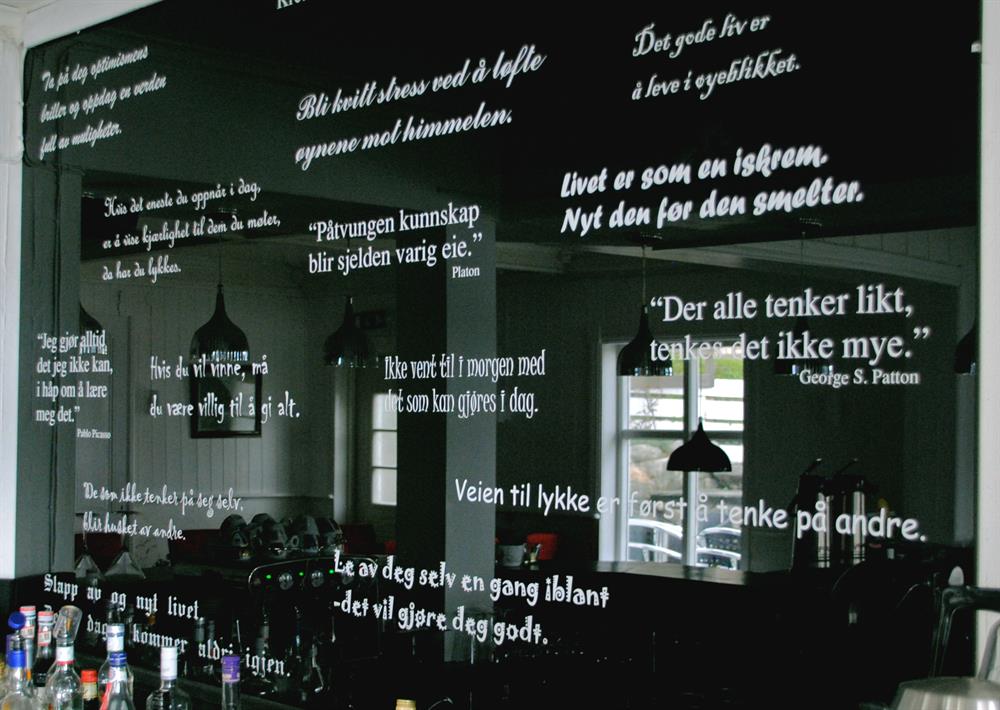 Ta på deg optimismens
briller og oppdag en verden
full av muligheter.
Bli kvitt stress ved å løfte
øynene mot himmelen.
Det gode liv er
å leve i øyeblikket.
Livet er som en iskrem.
Nyt den før den smelter.
Hvis det eneste du oppnår i dag,
er å vise kjærlighet til dem du møter,
da har du lykkes.
“Påtvungen kunnskap
blir sjelden varig eie.”
Platon
“Der alle tenker likt,
tenkes det ikke mye.”
George S. Patton
“Jeg gjør alltid
det jeg ikke kan,
i håp om å lære
meg det.”
Pablo Picasso
Hvis du vil vinne, må
du være villig til å gi alt.
Ikke vent til i morgen med
det som kan gjøres i dag.
De som ikke tenker på seg selv,
blir husket av andre.
Veien til lykke er først å tenke på andre.
Le av deg selv en gang iblant
-det vil gjøre deg godt.
Slapp av og nyt livet
dag kommer aldri igjen